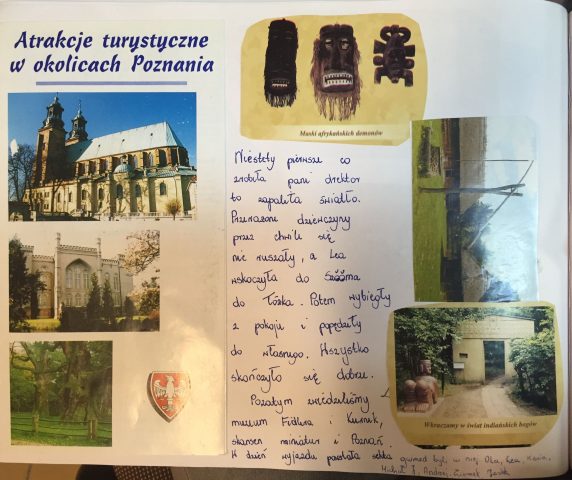 Atrakcje turystyczne
w okolicach Poznania
Maski afrykańskich demonów
Niestety pierwsze co
zrobiła pani drektor
to zapaliła światło.
Przerażone dziewczyny
przez chwile się
nie ruszały, a Lea
wskoczyła do
do łóżka. Potem wybiegły
z pokoju i popędziły
do własnego. Wszystko
skończyło się dobrze.
Pozatym zwiedzaliśmy
muzeum Fidlera i Kurnik,
skansen miniatur i Poznań.
W dzień wyjazdu powstała sekta
być w niej Ola, Lea, Kasia,
Michał J, Andrzej,
Wkraczamy w świat indiańskich bogów